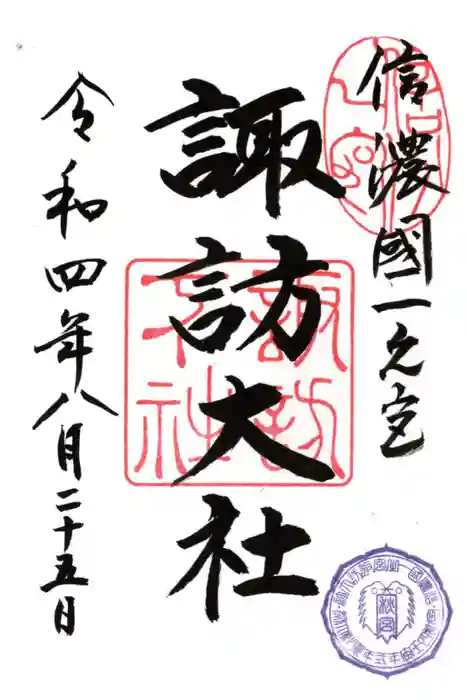 信濃國一之宮
諏訪大社
令和四年八月二十五日
諏訪大社
秋宮